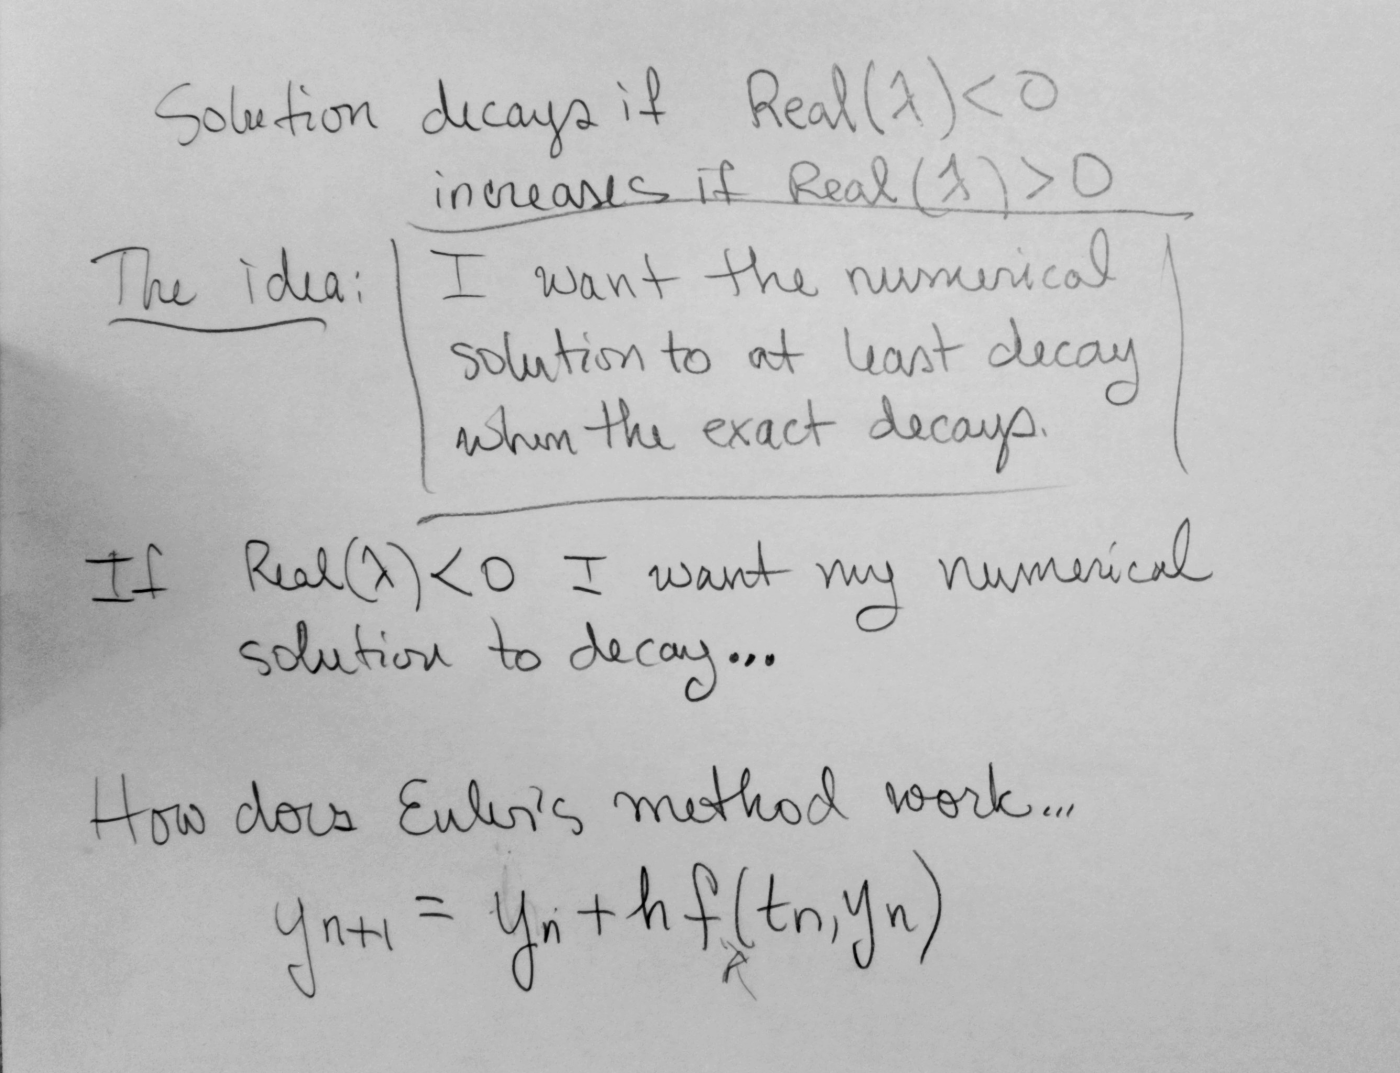 Solution decays if Real(λ)<0
increases if Real(λ)>0
The idea: I want the numerical
solution to at least decay
when the exact decays.
If Real(λ)<0 I want my numerical
solution to decay...
How does Euler's method work...
yn+1 = yn + h f(tn, yn)